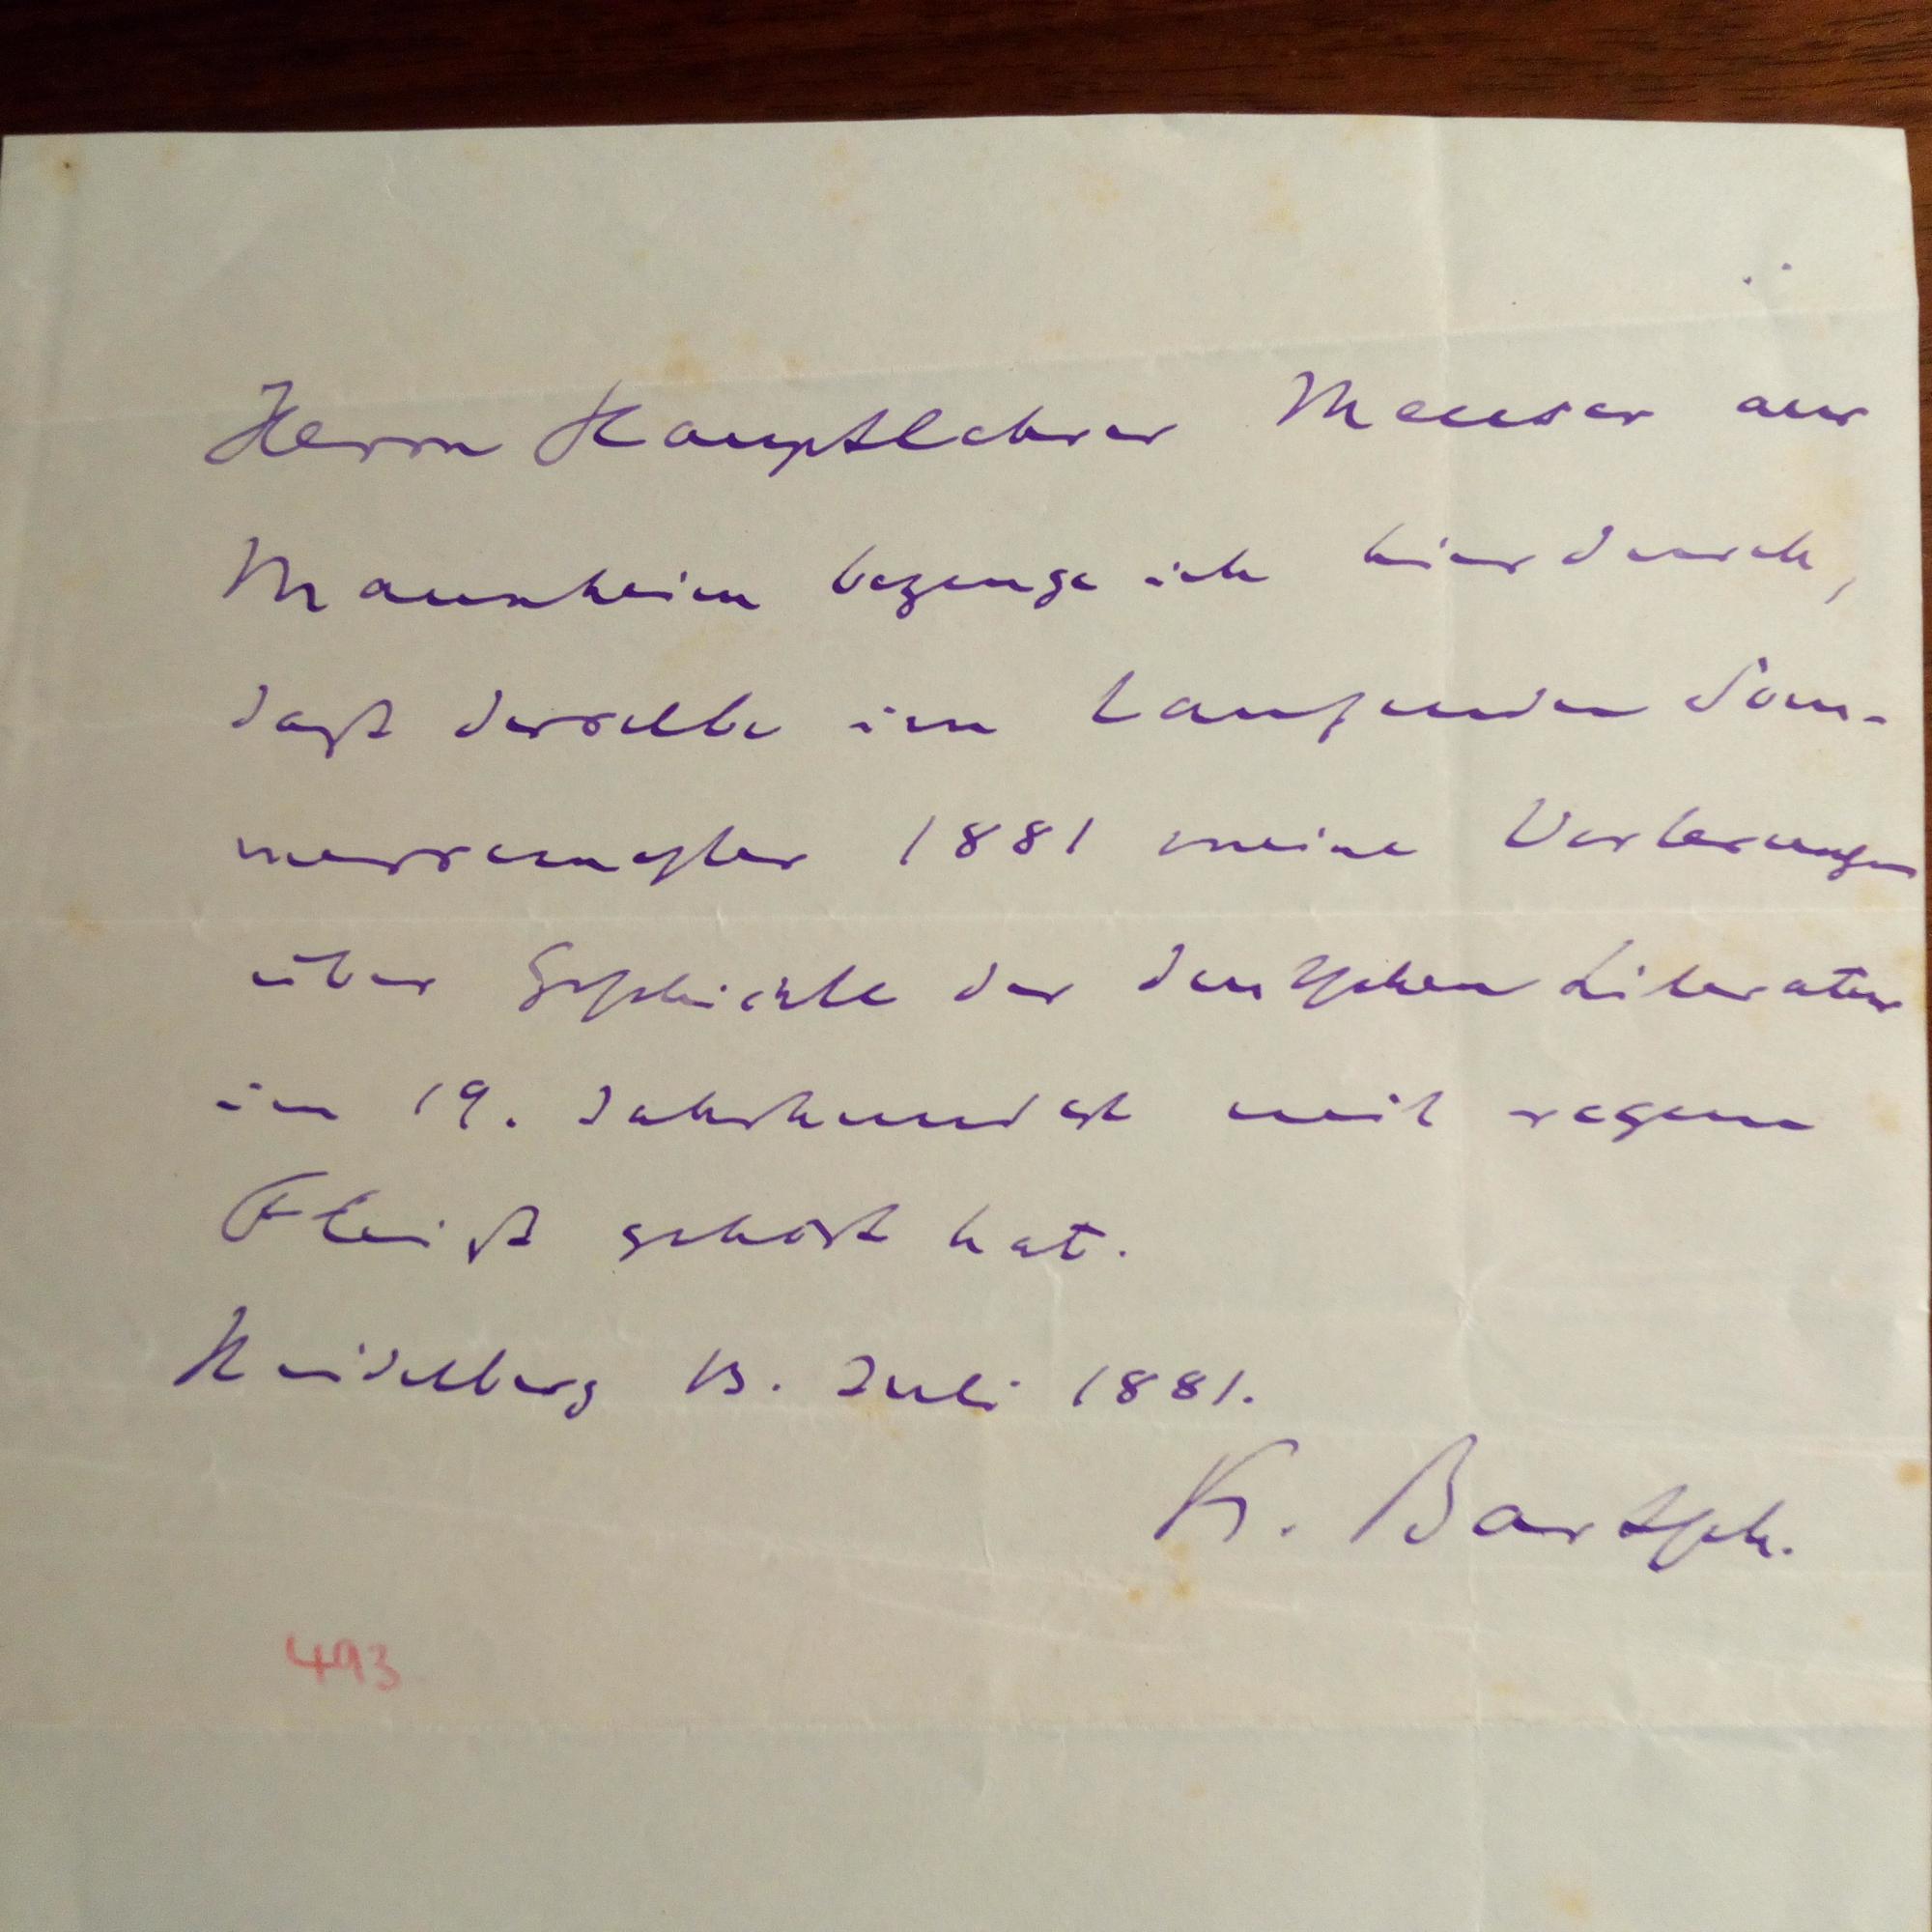 Herrn Hauptlehrer Meuser aus
Mannheim bezeuge ich hierdurch,
daß derselbe im laufenden Som-
mersemester 1881 meine Vorlesungen
über Geschichte der deutschen Literatur
im 19. Jahrhundert mit regem
Fleiß gehört hat.
Heidelberg 13. Juli 1881.
K. Bartsch.
493